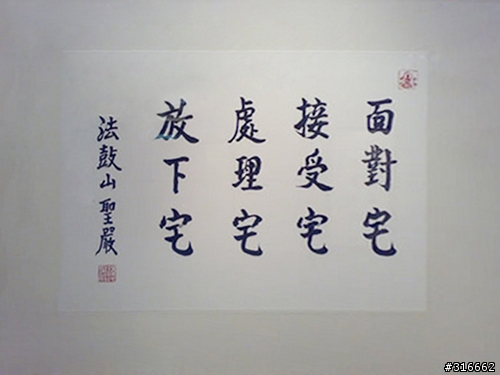 面對它
接受它
處理它
放下它
法鼓山 聖嚴
#316662